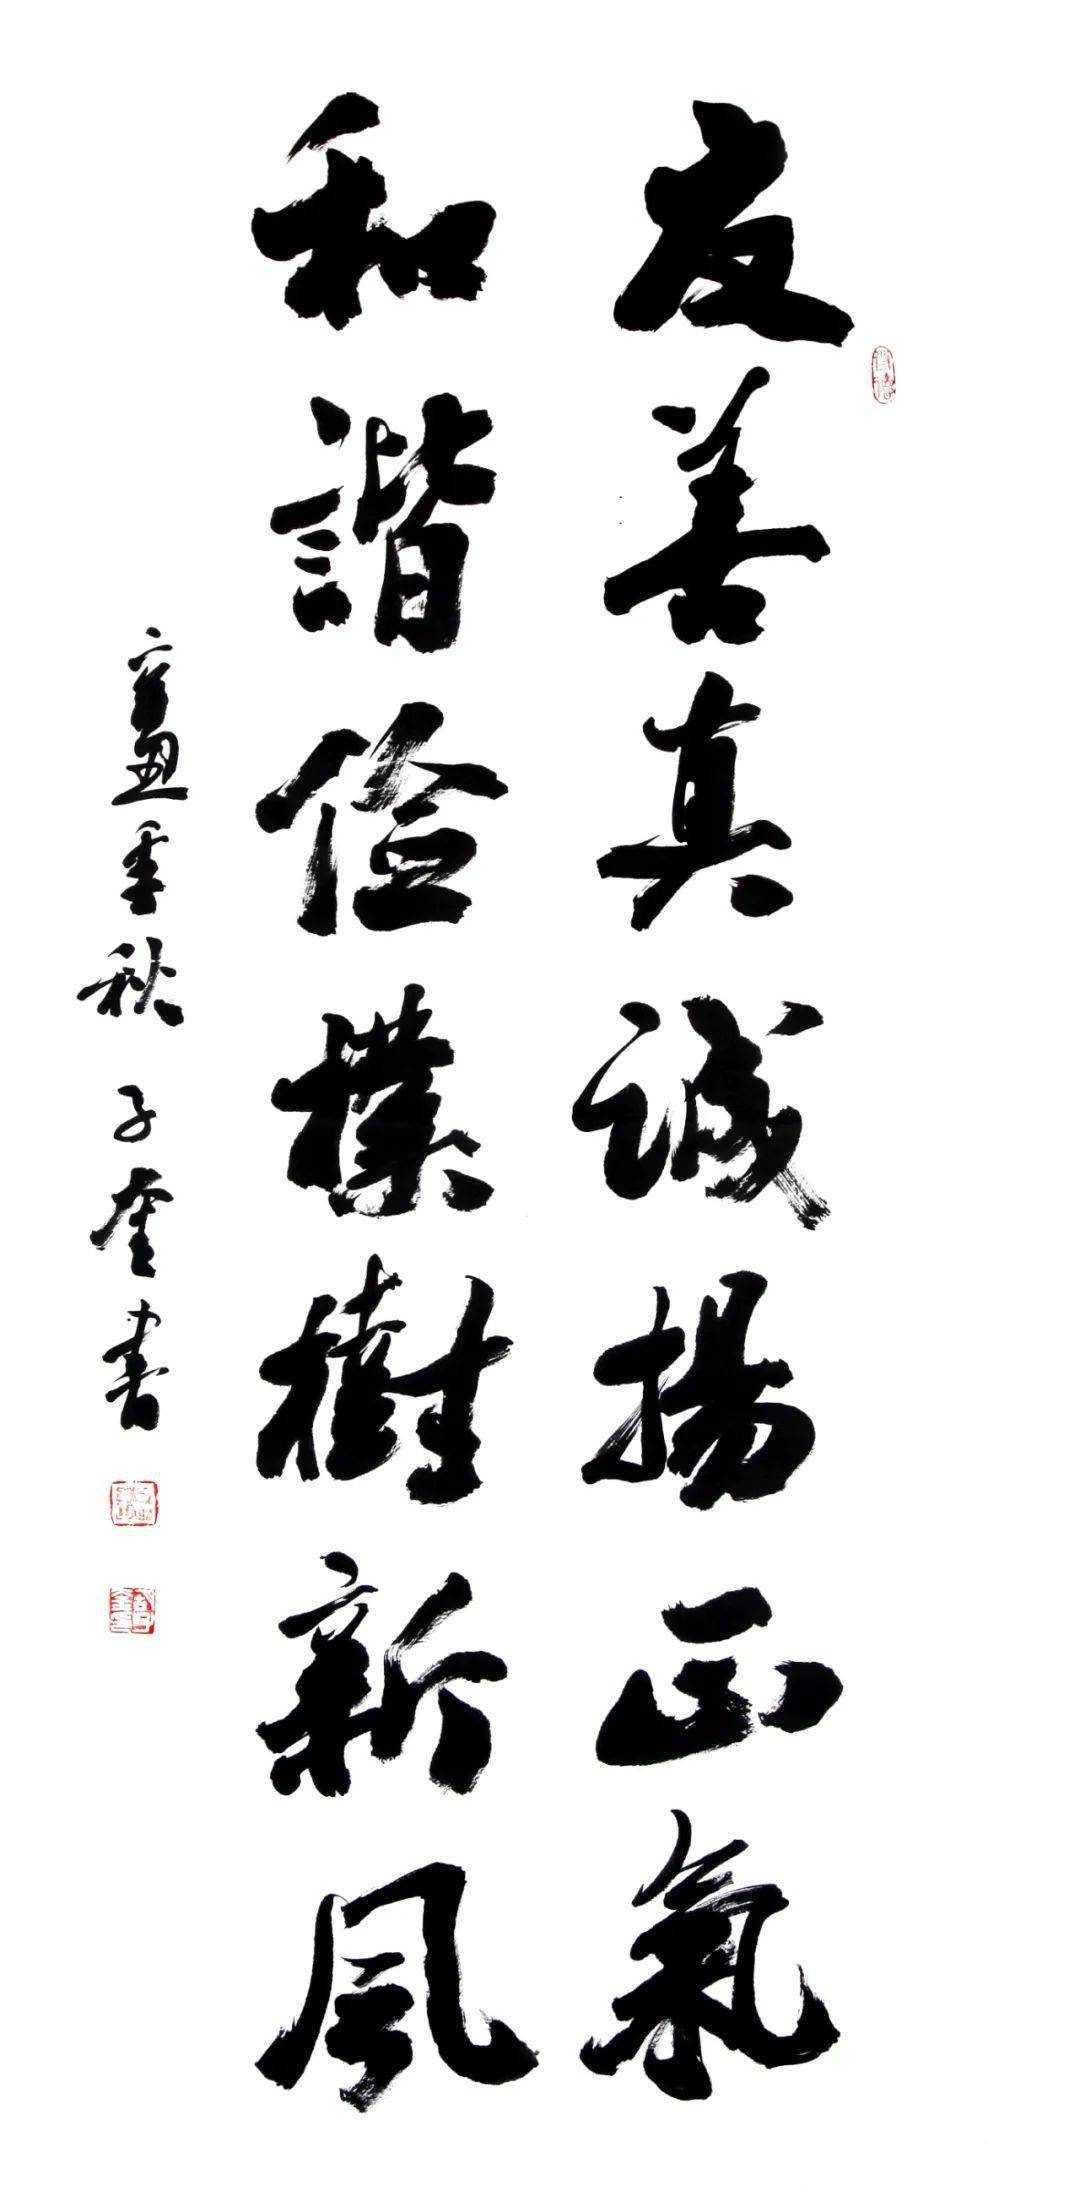 友善真誠揚正氣
和諧儉樸樹新風
辛丑季秋 子奎書